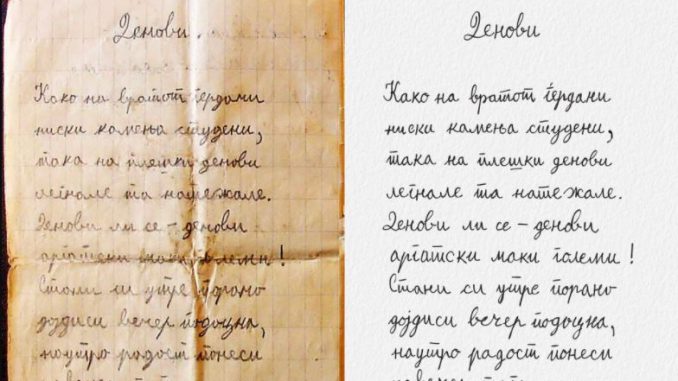 Денови.
Како на вратот ѓердани
ниски камења студени,
така на плешки денови
легнале та натежале.
Денови ли се – денови
аргатски маки големи!
Стани си утре порано
дојдиси вечер подоцна,
наутро радост понеси
Денови
Како на вратот ѓердани
ниски камења студени,
така на плешки денови
легнале та натежале.
Денови ли се – денови
аргатски маки големи!
Стани си утре порано
дојдиси вечер подоцна,
наутро радост понеси